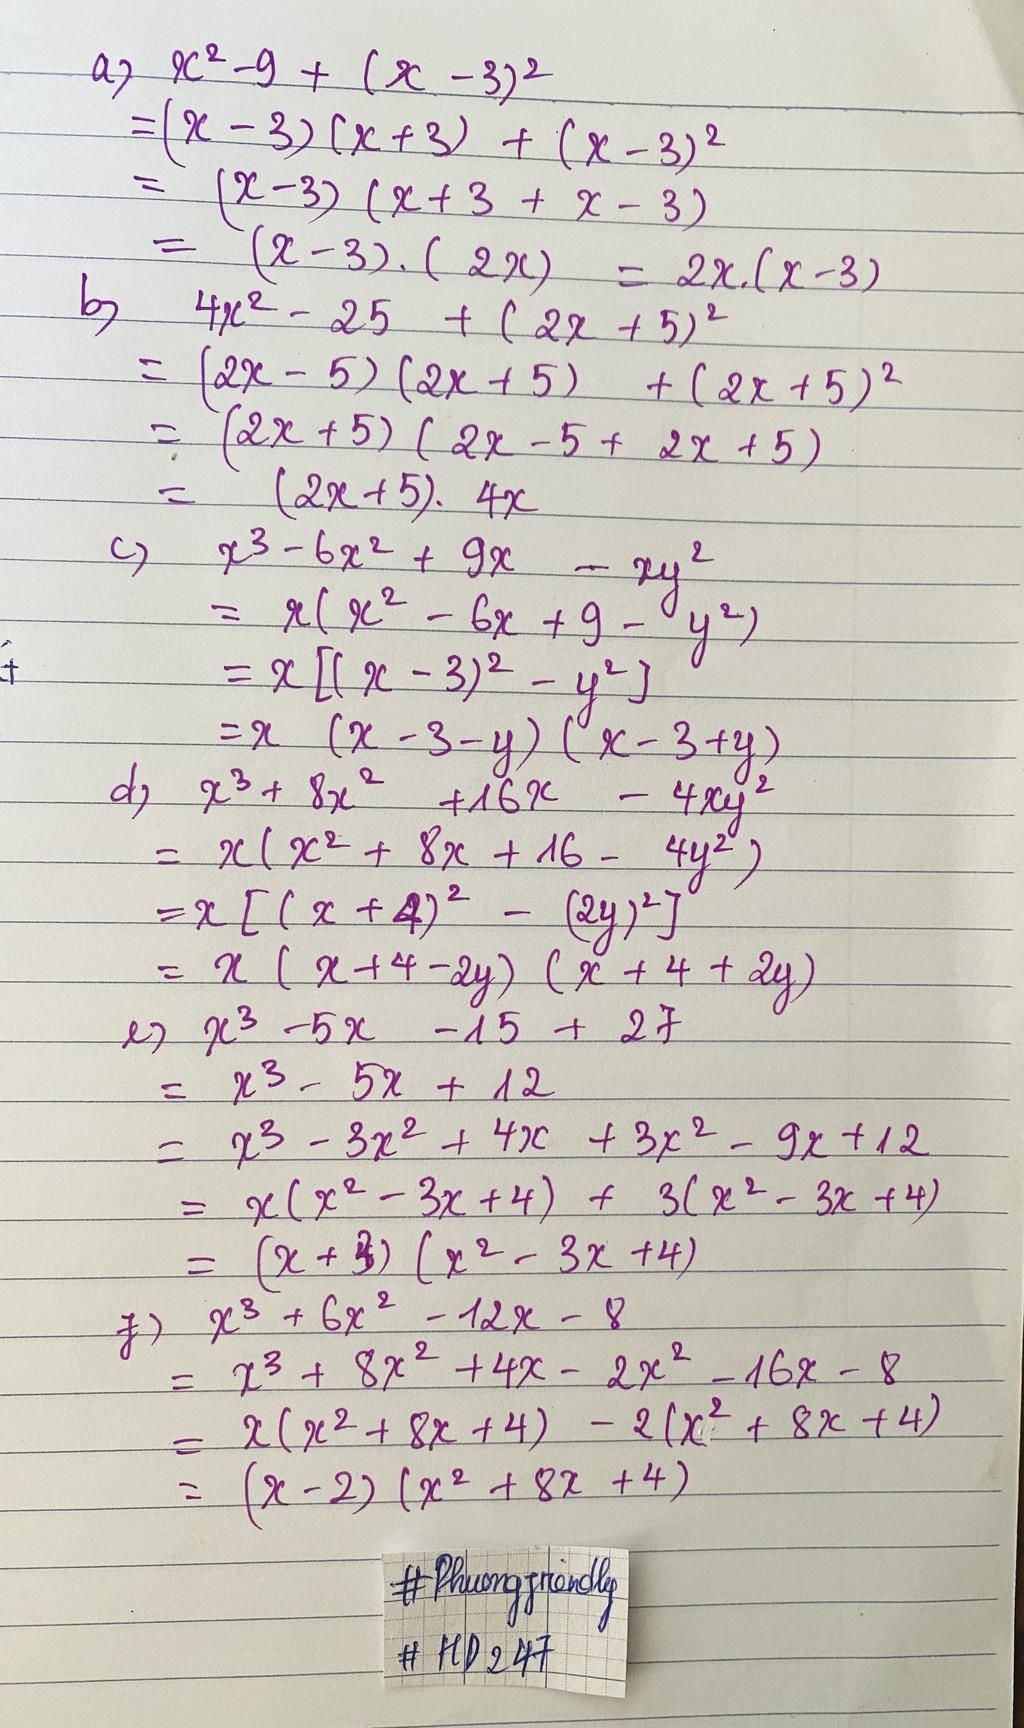 a) x² - 9 + (x - 3)²
= (x - 3)(x + 3) + (x - 3)²
= (x - 3)(x + 3 + x - 3)
= (x - 3).(2x) = 2x.(x - 3)
b) 4x² - 25 + (2x + 5)²
= (2x - 5)(2x + 5) + (2x + 5)²
= (2x + 5)(2x - 5 + 2x + 5)
= (2x + 5). 4x
c) x³ - 6x² + 9x - xy²
= x(x² - 6x + 9 - y²)
= x[(x - 3)² - y²]
= x (x - 3 - y)(x - 3 + y)
d) x³ + 8x² + 16x - 4xy²
= x(x² + 8x + 16 - 4y²)
= x[(x + 4)² - (2y)²]
= x(x + 4 - 2y)(x + 4 + 2y)
e) x³ - 5x - 15 + 27
= x³ - 5x + 12
= x³ - 3x² + 4x + 3x² - 9x + 12
= x(x² - 3x + 4) + 3(x² - 3x + 4)
= (x + 3)(x² - 3x + 4)
f) x³ + 6x² - 12x - 8
= x³ + 8x² + 4x - 2x² - 16x - 8
= x(x² + 8x + 4) - 2(x² + 8x + 4)
= (x - 2)(x² + 8x + 4)
#Phuongfriendly
# HD247